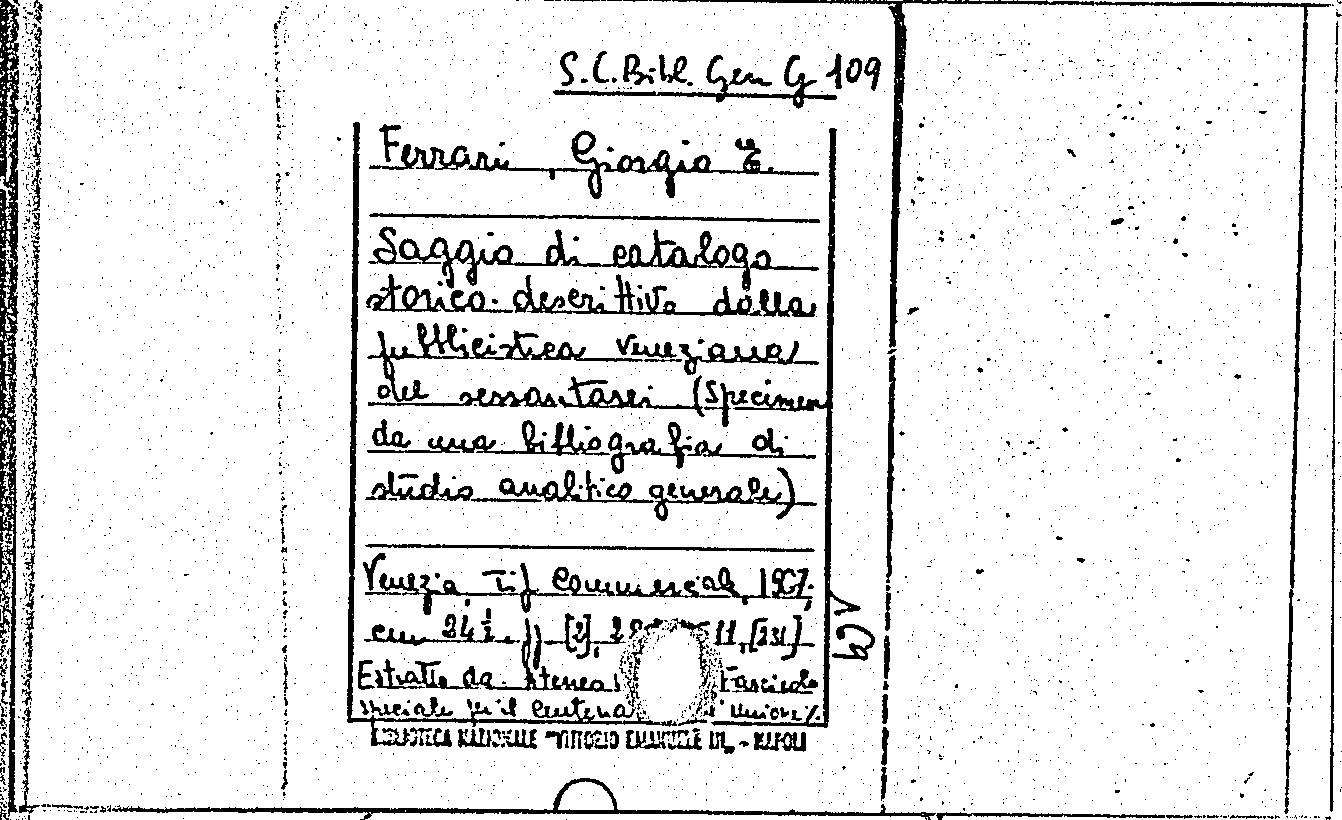 S.C. Bibl. Gen G 109
Ferrari, Giorgio E.
Saggio di catalogo
storico-descrittivo della
pubblicistica veneziana
del sessantasei (Specimen
da una bibliografia di
studio analitico generale)
Venezia, Tip. Commerciale, 1967.
cm 24 ½. pp [2], 11, [231]
Estratto da: Fascicolo
speciale per il Unione %.
BIBLIOTECA NAZIONALE "VITTORIO EMANUELE III" - NAPOLI